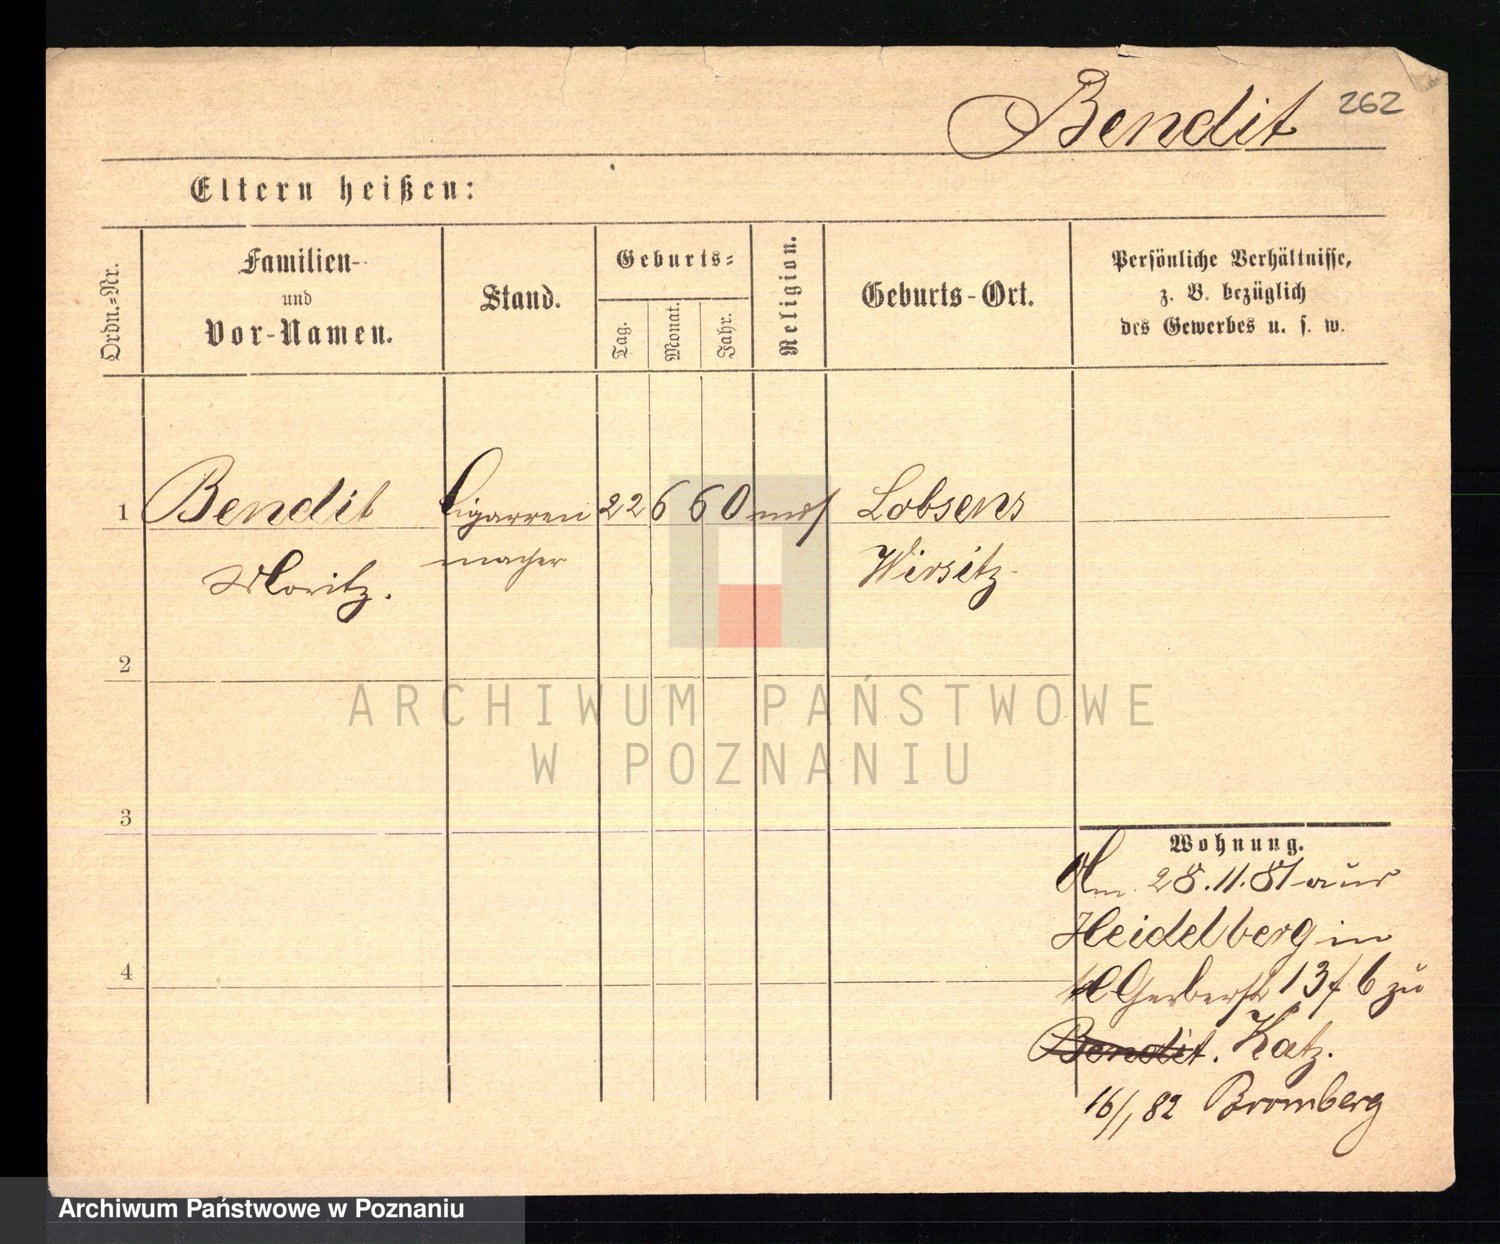 Bendit 262
Eltern heißen:
Ordn.-Nr.
Familien-
und
Vor-Namen.
Stand.
Geburts-
Tag.
Monat.
Jahr.
Religion.
Geburts-Ort.
Persönliche Verhältnisse,
z. B. bezüglich
des Gewerbes u. s. w.
1 Bendit Cigarren 22 6 60 mos Lobsens
macher Wirsitz
Moritz.
2
3
4
Wohnung.
Am 28.11.81 aus
Heidelberg in
Gerberstr 13 b zu
Bendit. Katz.
16/1 82 Bromberg
ARCHIWUM PAŃSTWOWE
W POZNANIU
Archiwum Państwowe w Poznaniu